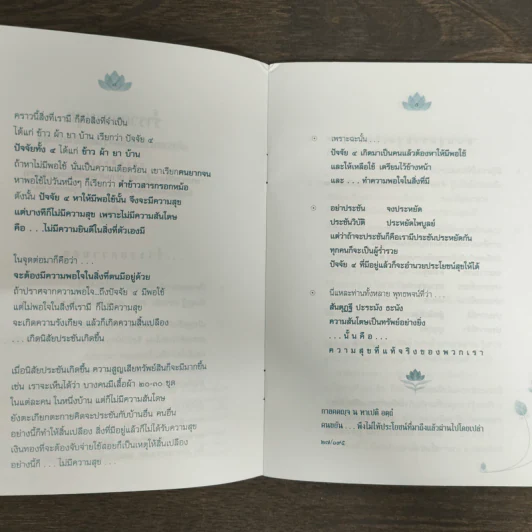 คราวนี้สิ่งที่เรามี ก็คือสิ่งที่จำเป็น
ได้แก่ ข้าว ผ้า ยา บ้าน เรียกว่า ปัจจัย ๔
ปัจจัยทั้ง ๔ ได้แก่ ข้าว ผ้า ยา บ้าน
ถ้าหาไม่มีพอใช้ นั่นเป็นความเดือดร้อน เขาเรียกคนยากจน
หาพอใช้ไปวันหนึ่งๆ ก็เรียกว่า ตำข้าวสารกรอกหม้อ
ดังนั้น ปัจจัย ๔ หาให้มีพอใช้นั้น จึงจะมีความสุข
แต่บางทีก็ไม่มีความสุข เพราะไม่มีความสันโดษ
คือ . . .ไม่มีความยินดีในสิ่งที่ตัวเองมี
ในจุดต่อมาก็คือว่า . . .
จะต้องมีความพอใจในสิ่งที่ตนมีอยู่ด้วย
ถ้าปราศจากความพอใจ..ถึงปัจจัย ๔ มีพอใช้
แต่ไม่พอใจในสิ่งที่เรามี ก็ไม่มีความสุข
จะเกิดความรังเกียจ แล้วก็เกิดความสิ้นเปลือง
. . . เกิดนิสัยประชันเกิดขึ้น
เมื่อนิสัยประชันเกิดขึ้น ความสูญเสียทรัพย์สินก็จะมีมากขึ้น
เช่น เราจะเห็นได้ว่า บางคนมีเสื้อผ้า ๒๐-๓๐ ชุด
ในแต่ละคน ในหนึ่งบ้าน แต่ก็ไม่มีความสันโดษ
ยังตะเกียกตะกายคิดจะประชันกับบ้านอื่น คนอื่น
อย่างนี้ก็ทำให้สิ้นเปลือง สิ่งที่มีอยู่แล้วก็ไม่ได้รับความสุข
เงินทองที่จะต้องจับจ่ายใช้สอยก็เป็นเหตุให้สิ้นเปลือง
อย่างนี้ก็ . . . ไม่มีความสุข . . .
เพราะฉะนั้น . . .
ปัจจัย ๔ เกิดมาเป็นคนแล้วต้องหาให้มีพอใช้
และให้เหลือใช้ เตรียมไว้ข้างหน้า
และ . . . ทำความพอใจในสิ่งที่มี
อย่าประชัน จงประหยัด
ประชันวิบัติ ประหยัดไพบูลย์
แต่ว่าถ้าจะประชันก็คือเรามีประชันประหยัดกัน
ทุกคนก็จะเป็นผู้ร่ำรวย
ปัจจัย ๔ ที่มีอยู่แล้วก็จะอำนวยประโยชน์สุขให้ได้
นี่แหละท่านทั้งหลาย พุทธพจน์ที่ว่า . . .
สันตุฏฐี ปะระมัง ธะนัง
ความสันโดษเป็นทรัพย์อย่างยิ่ง
. . . นั้ น คื อ . . .
ค ว า ม สุ ข ที่ แ ท้ จ ริ ง ข อ ง พ ว ก เ ร า
กาลคตญฺจ น หาเปติ อตฺถํ
คนขยัน . . . พึงไม่ให้ประโยชน์ที่มาถึงแล้วผ่านไปโดยเปล่า